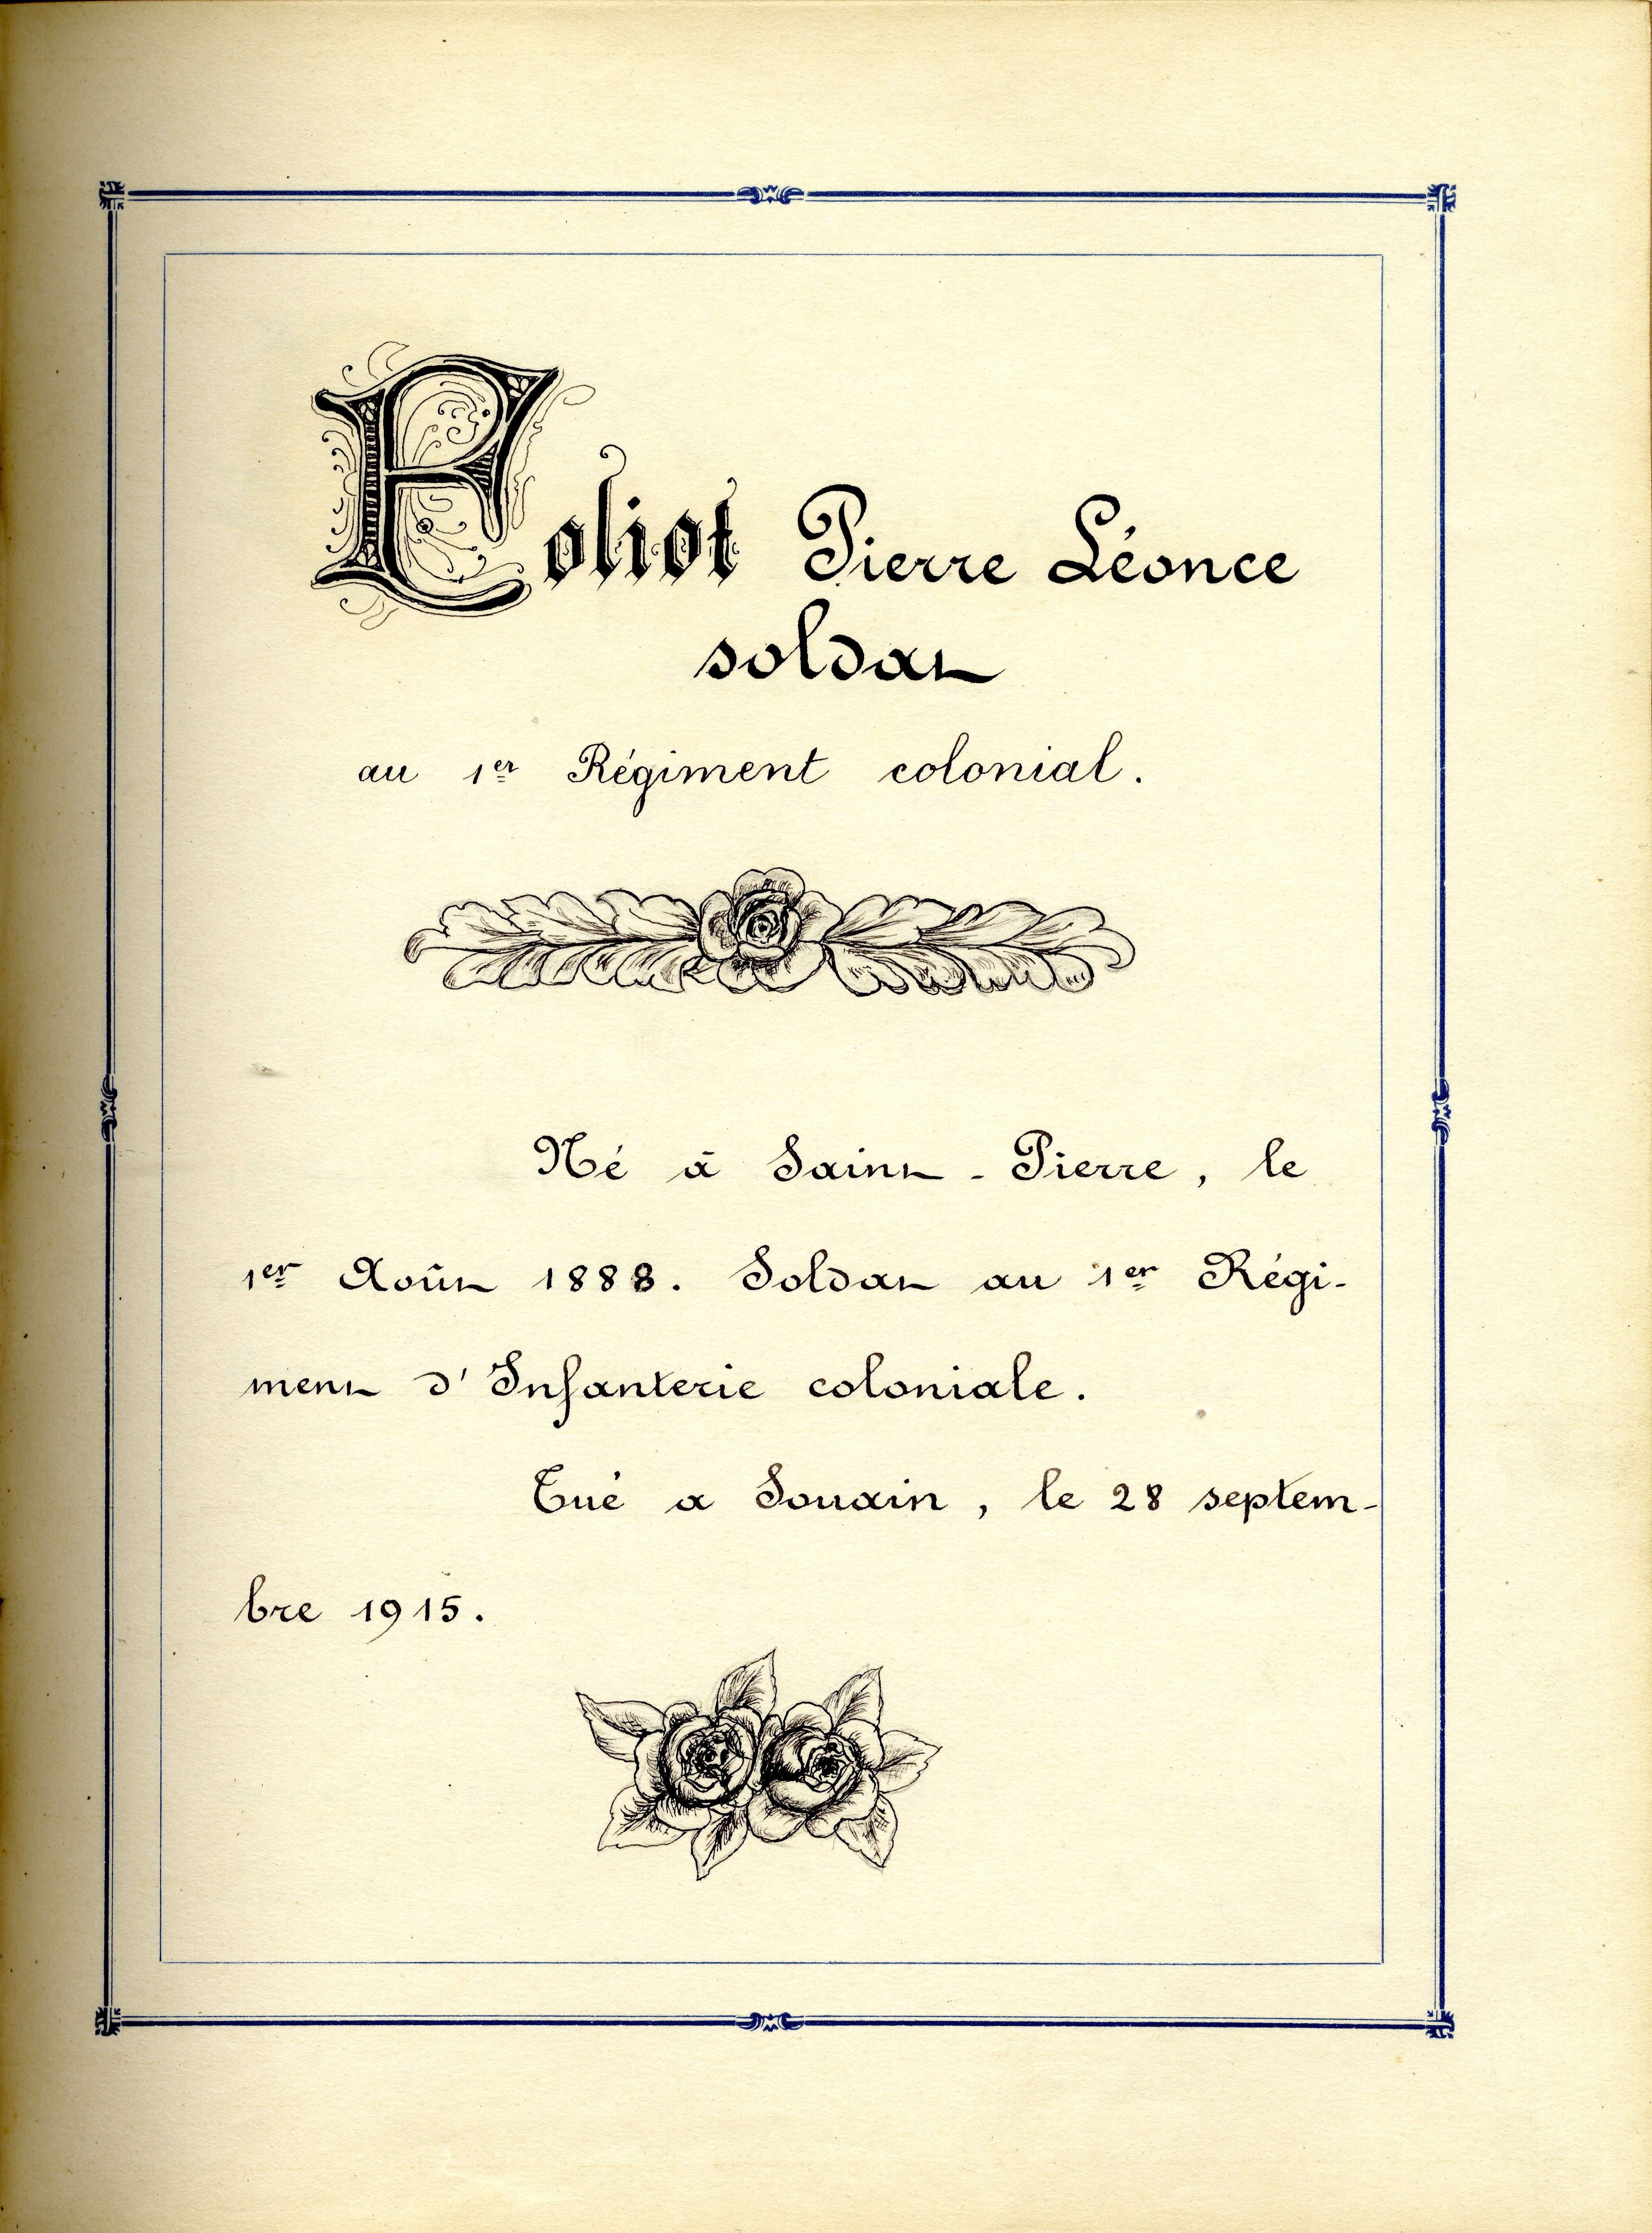 Foliot Pierre Léonce
soldat
au 1er Régiment colonial.
Né à Saint-Pierre, le
1er Août 1888. Soldat au 1er Régi-
ment d'Infanterie coloniale.
Tué a Souain, le 28 septem-
bre 1915.